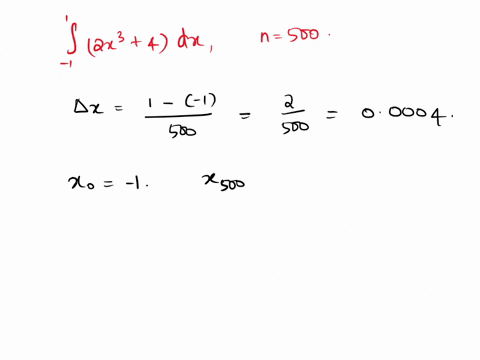 ∫₋₁¹ (2x³ + 4) dx, n = 500.
Δx = (1 − (−1))/500 = 2/500 = 0.0004.
x₀ = −1. x₅₀₀